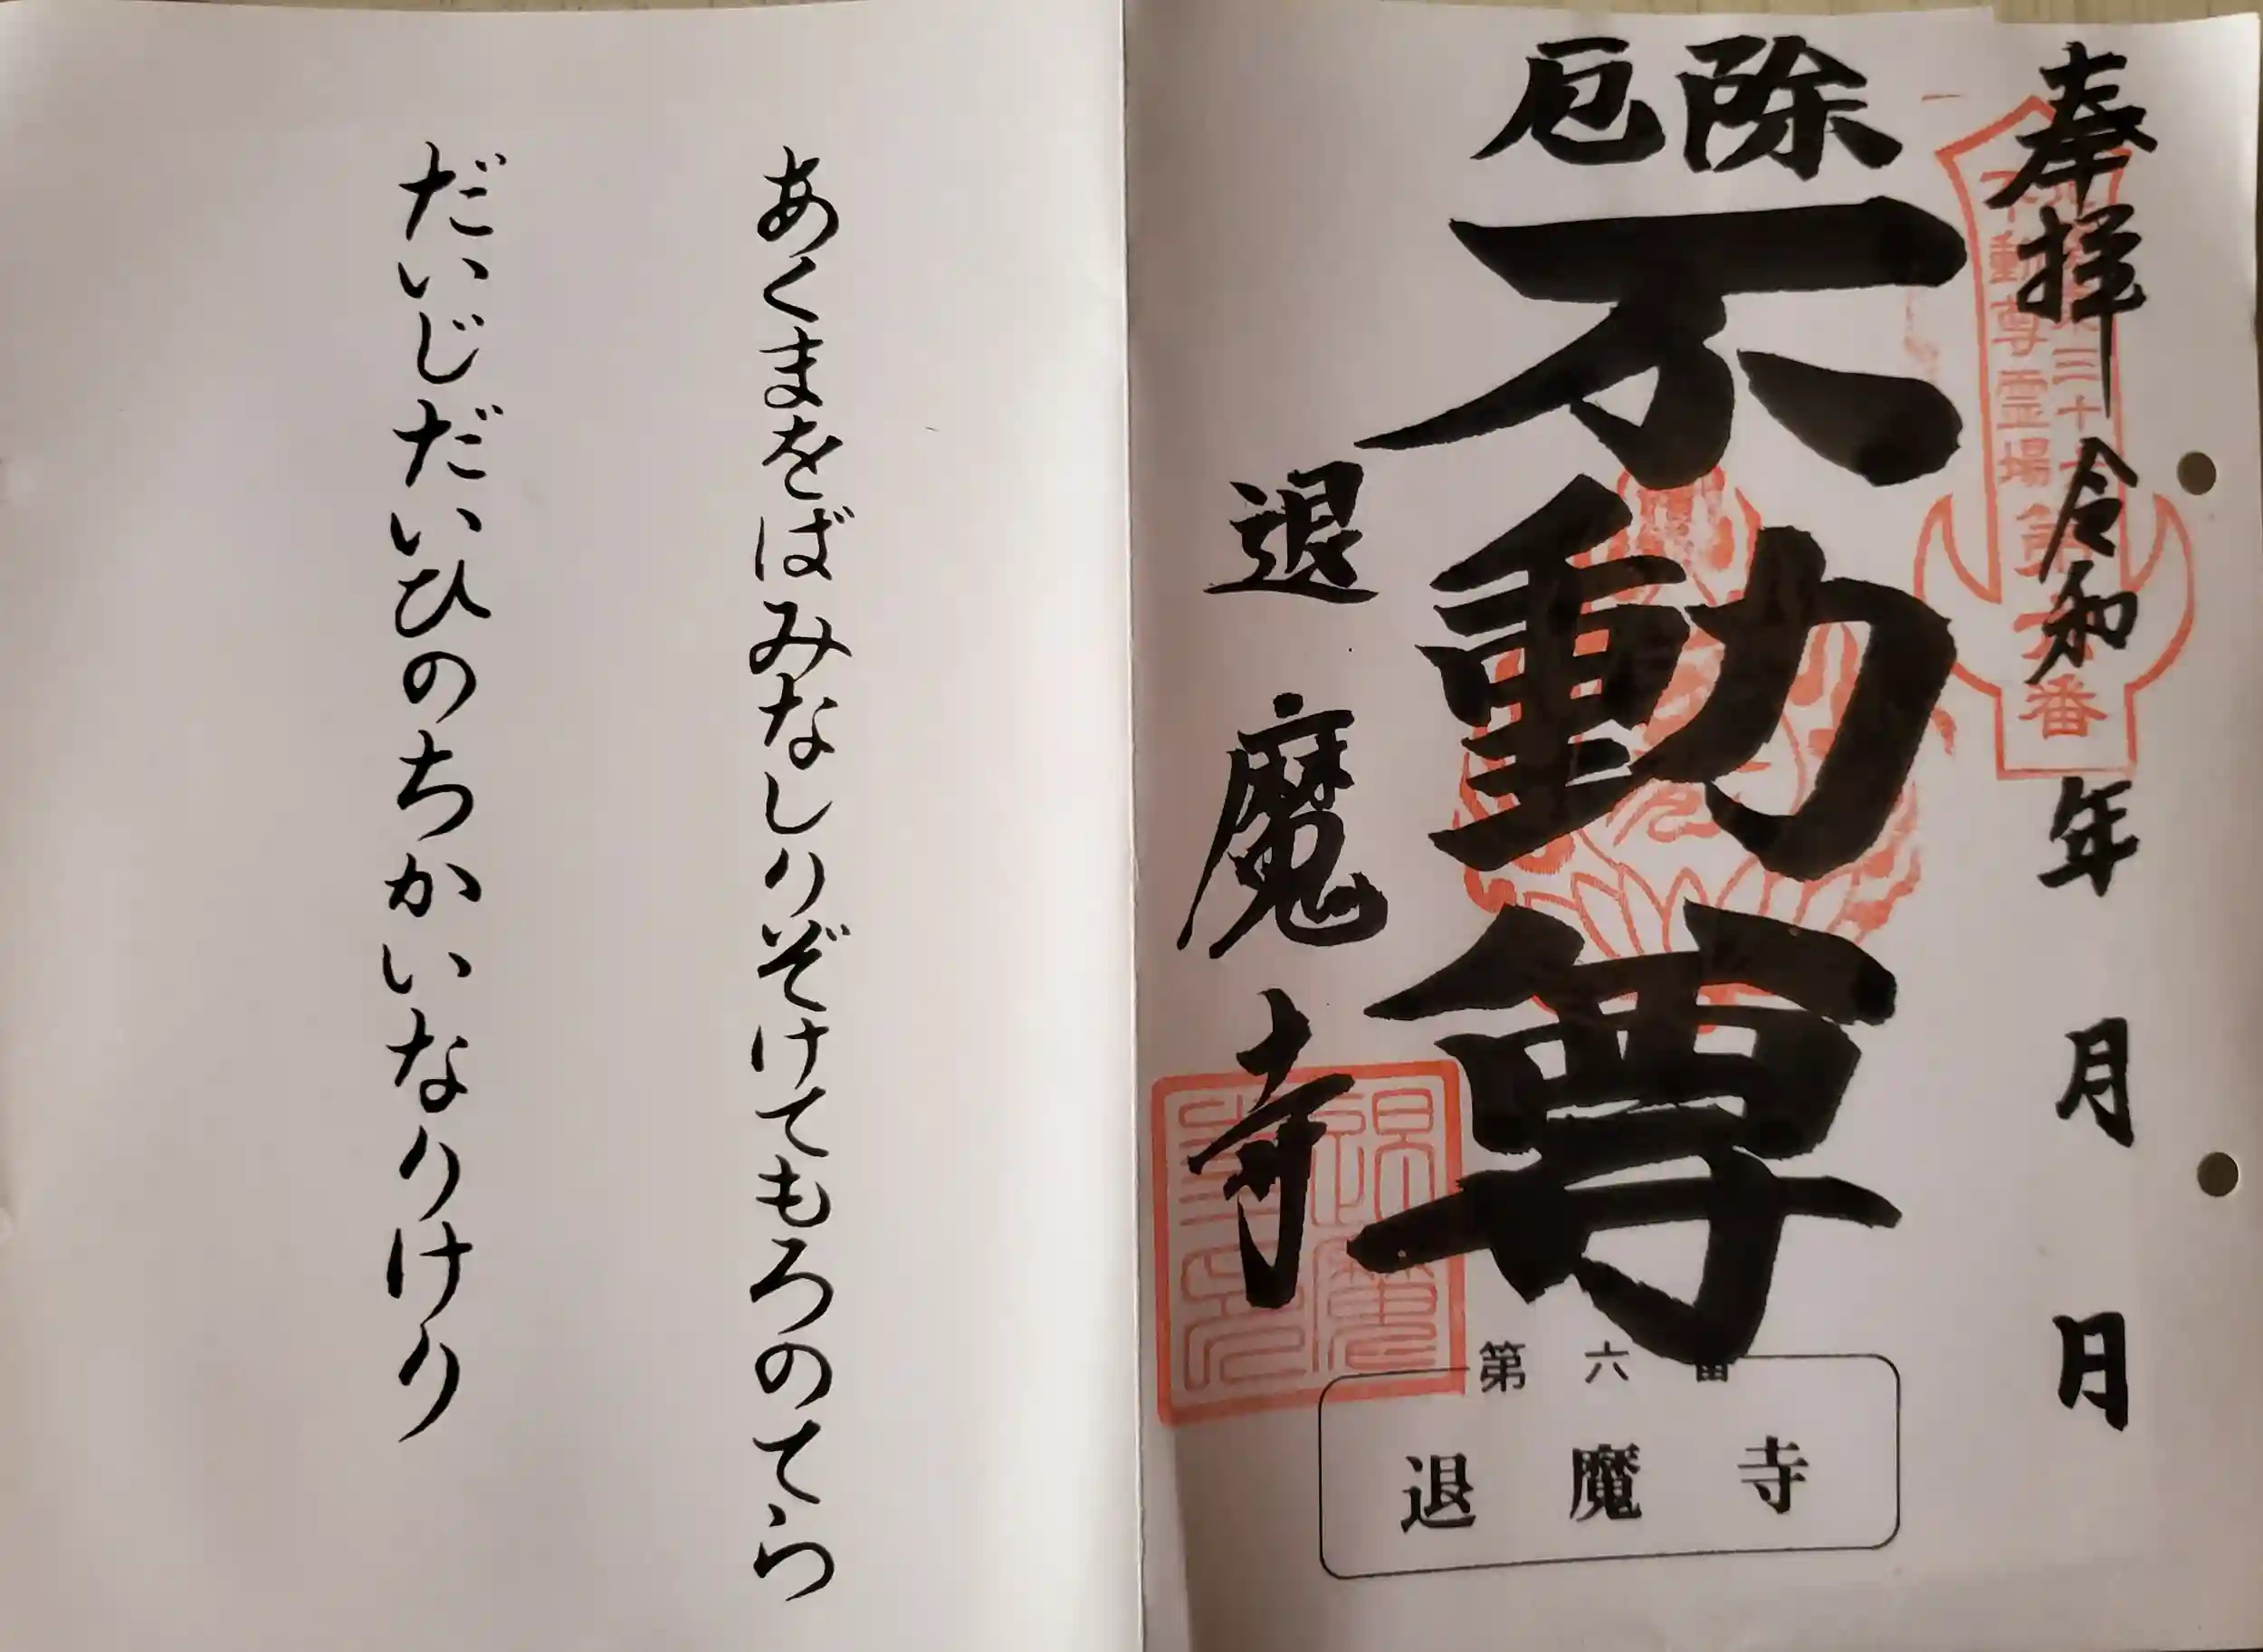 奉拝 令和 年 月 日
厄除
不動尊
退魔寺
三十六
不動尊霊場
第六番
第六番
退魔寺
あくまをばみなしりぞけてもろのてら
だいじだいひのちかいなりけり